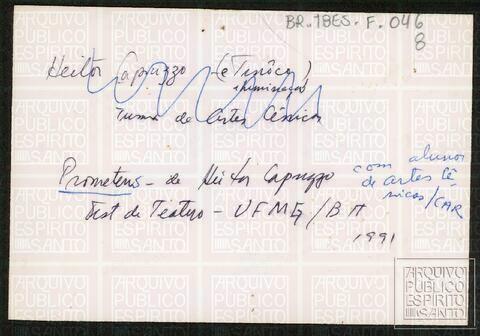 BR.18ES.F.046
8
Heitor Capuzzo (e Tinôco)
iluminação
Turma de Artes Cênicas
Prometeus - de Heitor Capuzzo
Fest de Teatro - UFMG/BH
1991
com alunos
de artes cê-
nicas/CAR
ARQUIVO
PÚBLICO
ESPÍRITO
SANTO